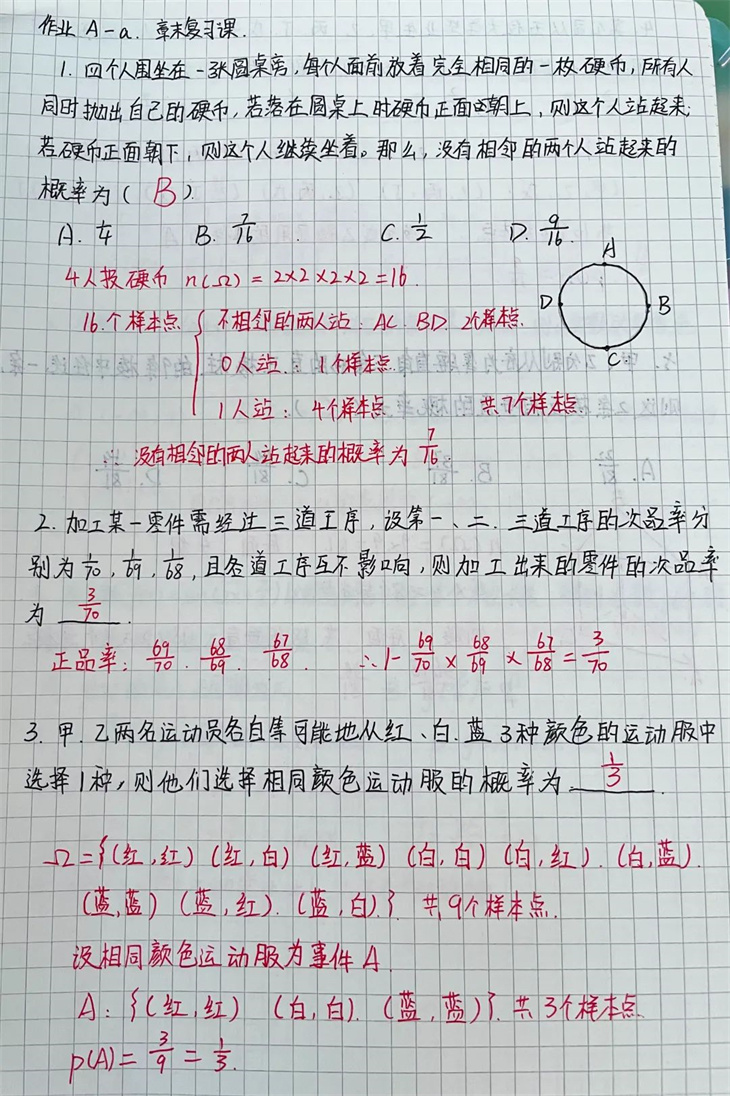 作业 A-a. 章末复习课.
1. 四个人围坐在一张圆桌旁,每个人面前放着完全相同的一枚硬币,所有人
同时抛出自己的硬币,若落在圆桌上时硬币正面朝上,则这个人站起来;
若硬币正面朝下,则这个人继续坐着。那么,没有相邻的两个人站起来的
概率为( B ).
A. 1/4 B. 7/16 C. 1/2 D. 9/16.
4人投硬币 n(Ω)=2×2×2×2=16.
16.个样本点 { 不相邻的两人站: AC. BD. 2个样本点.
0人站: 1个样本点.
1人站: 4个样本点 共7个样本点.
没有相邻的两人站起来的概率为 7/16.
A
D B
C.
2. 加工某一零件需经过三道工序,设第一、二.三道工序的次品率分
别为 1/70, 1/69, 1/68, 且各道工序互不影响,则加工出来的零件的次品率
为 3/70.
正品率: 69/70. 68/69. 67/68. ∴1-69/70×68/69×67/68=3/70
3. 甲.乙两名运动员各自等可能地从红、白.蓝3种颜色的运动服中
选择1种,则他们选择相同颜色运动服的概率为 1/3.
Ω={(红,红) (红,白) (红,蓝) (白,白) (白,红). (白,蓝).
(蓝,蓝) (蓝,红). (蓝,白).}. 共9个样本点.
设相同颜色运动服为事件A.
A: {(红,红) (白,白). (蓝,蓝)}. 共3个样本点.
P(A)=3/9=1/3.